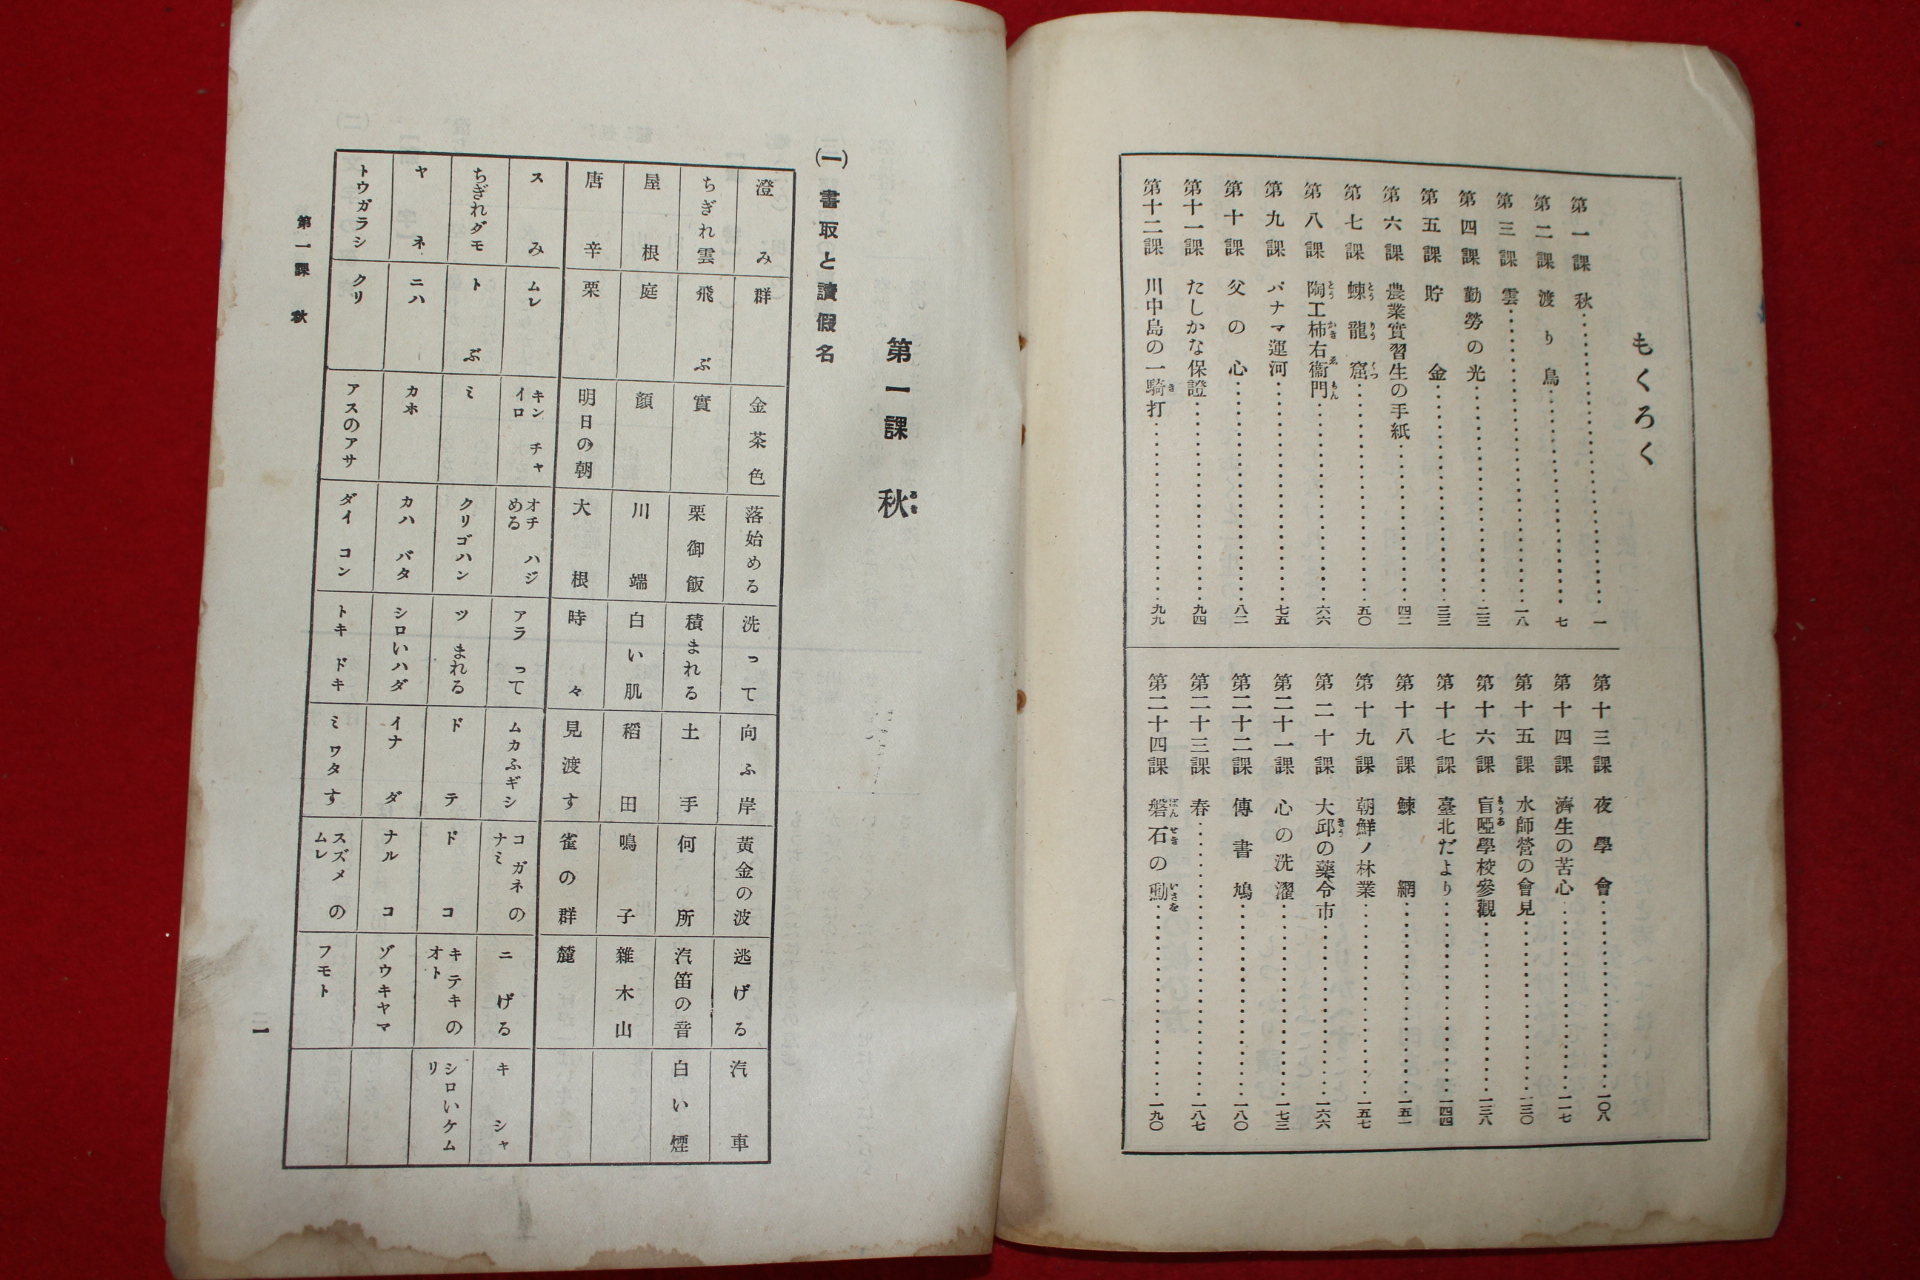 もくろく
第一課 秋 一
第二課 渡り鳥 七
第三課 雲 一八
第四課 勤勞の光 二三
第五課 貯金 三三
第六課 農業實習生の手紙 四二
第七課 蝀龍窟 五〇
第八課 陶工柿右衞門 六六
第九課 パナマ運河 七五
第十課 父の心 八二
第十一課 たしかな保證 九四
第十二課 川中島の一騎打 九九
第十三課 夜學會 一〇八
第十四課 濟生の苦心 一一七
第十五課 水師營の會見 一三〇
第十六課 盲啞學校參觀 一三八
第十七課 臺北だより 一四四
第十八課 鰊網 一五一
第十九課 朝鮮ノ林業 一五七
第二十課 大邱の藥令市 一六六
第二十一課 心の洗濯 一七三
第二十二課 傳書鳩 一八〇
第二十三課 春 一八七
第二十四課 磐石の勳 一九〇
第一課 秋
(一) 書取と讀假名
澄み 群 金茶色 落始める 洗って 向ふ岸 黃金の波 逃げる 汽車
ちぎれ雲 飛ぶ 實 栗御飯 積まれる 土手 何所 汽笛の音 白い煙
屋根 庭 顏 川端 白い肌 稻田 鳴子 雜木山
唐辛 栗 明日の朝 大根 時々 見渡す 雀の群 麓
スみ ムレ キンチャイロ オチハジめる アラって ムカふギシ コガネのナミ ニげる キシャ
ちぎれグモ トぶ ミ クリゴハン ツまれる ドテ ドコ キテキのオト シロいケムリ
ヤネ ニハ カホ カハバタ シロいハダ イナダ ナルコ ゾウキヤマ
トウガラシ クリ アスのアサ ダイコン トキドキ ミワタす スズメのムレ フモト
第一課 秋
一